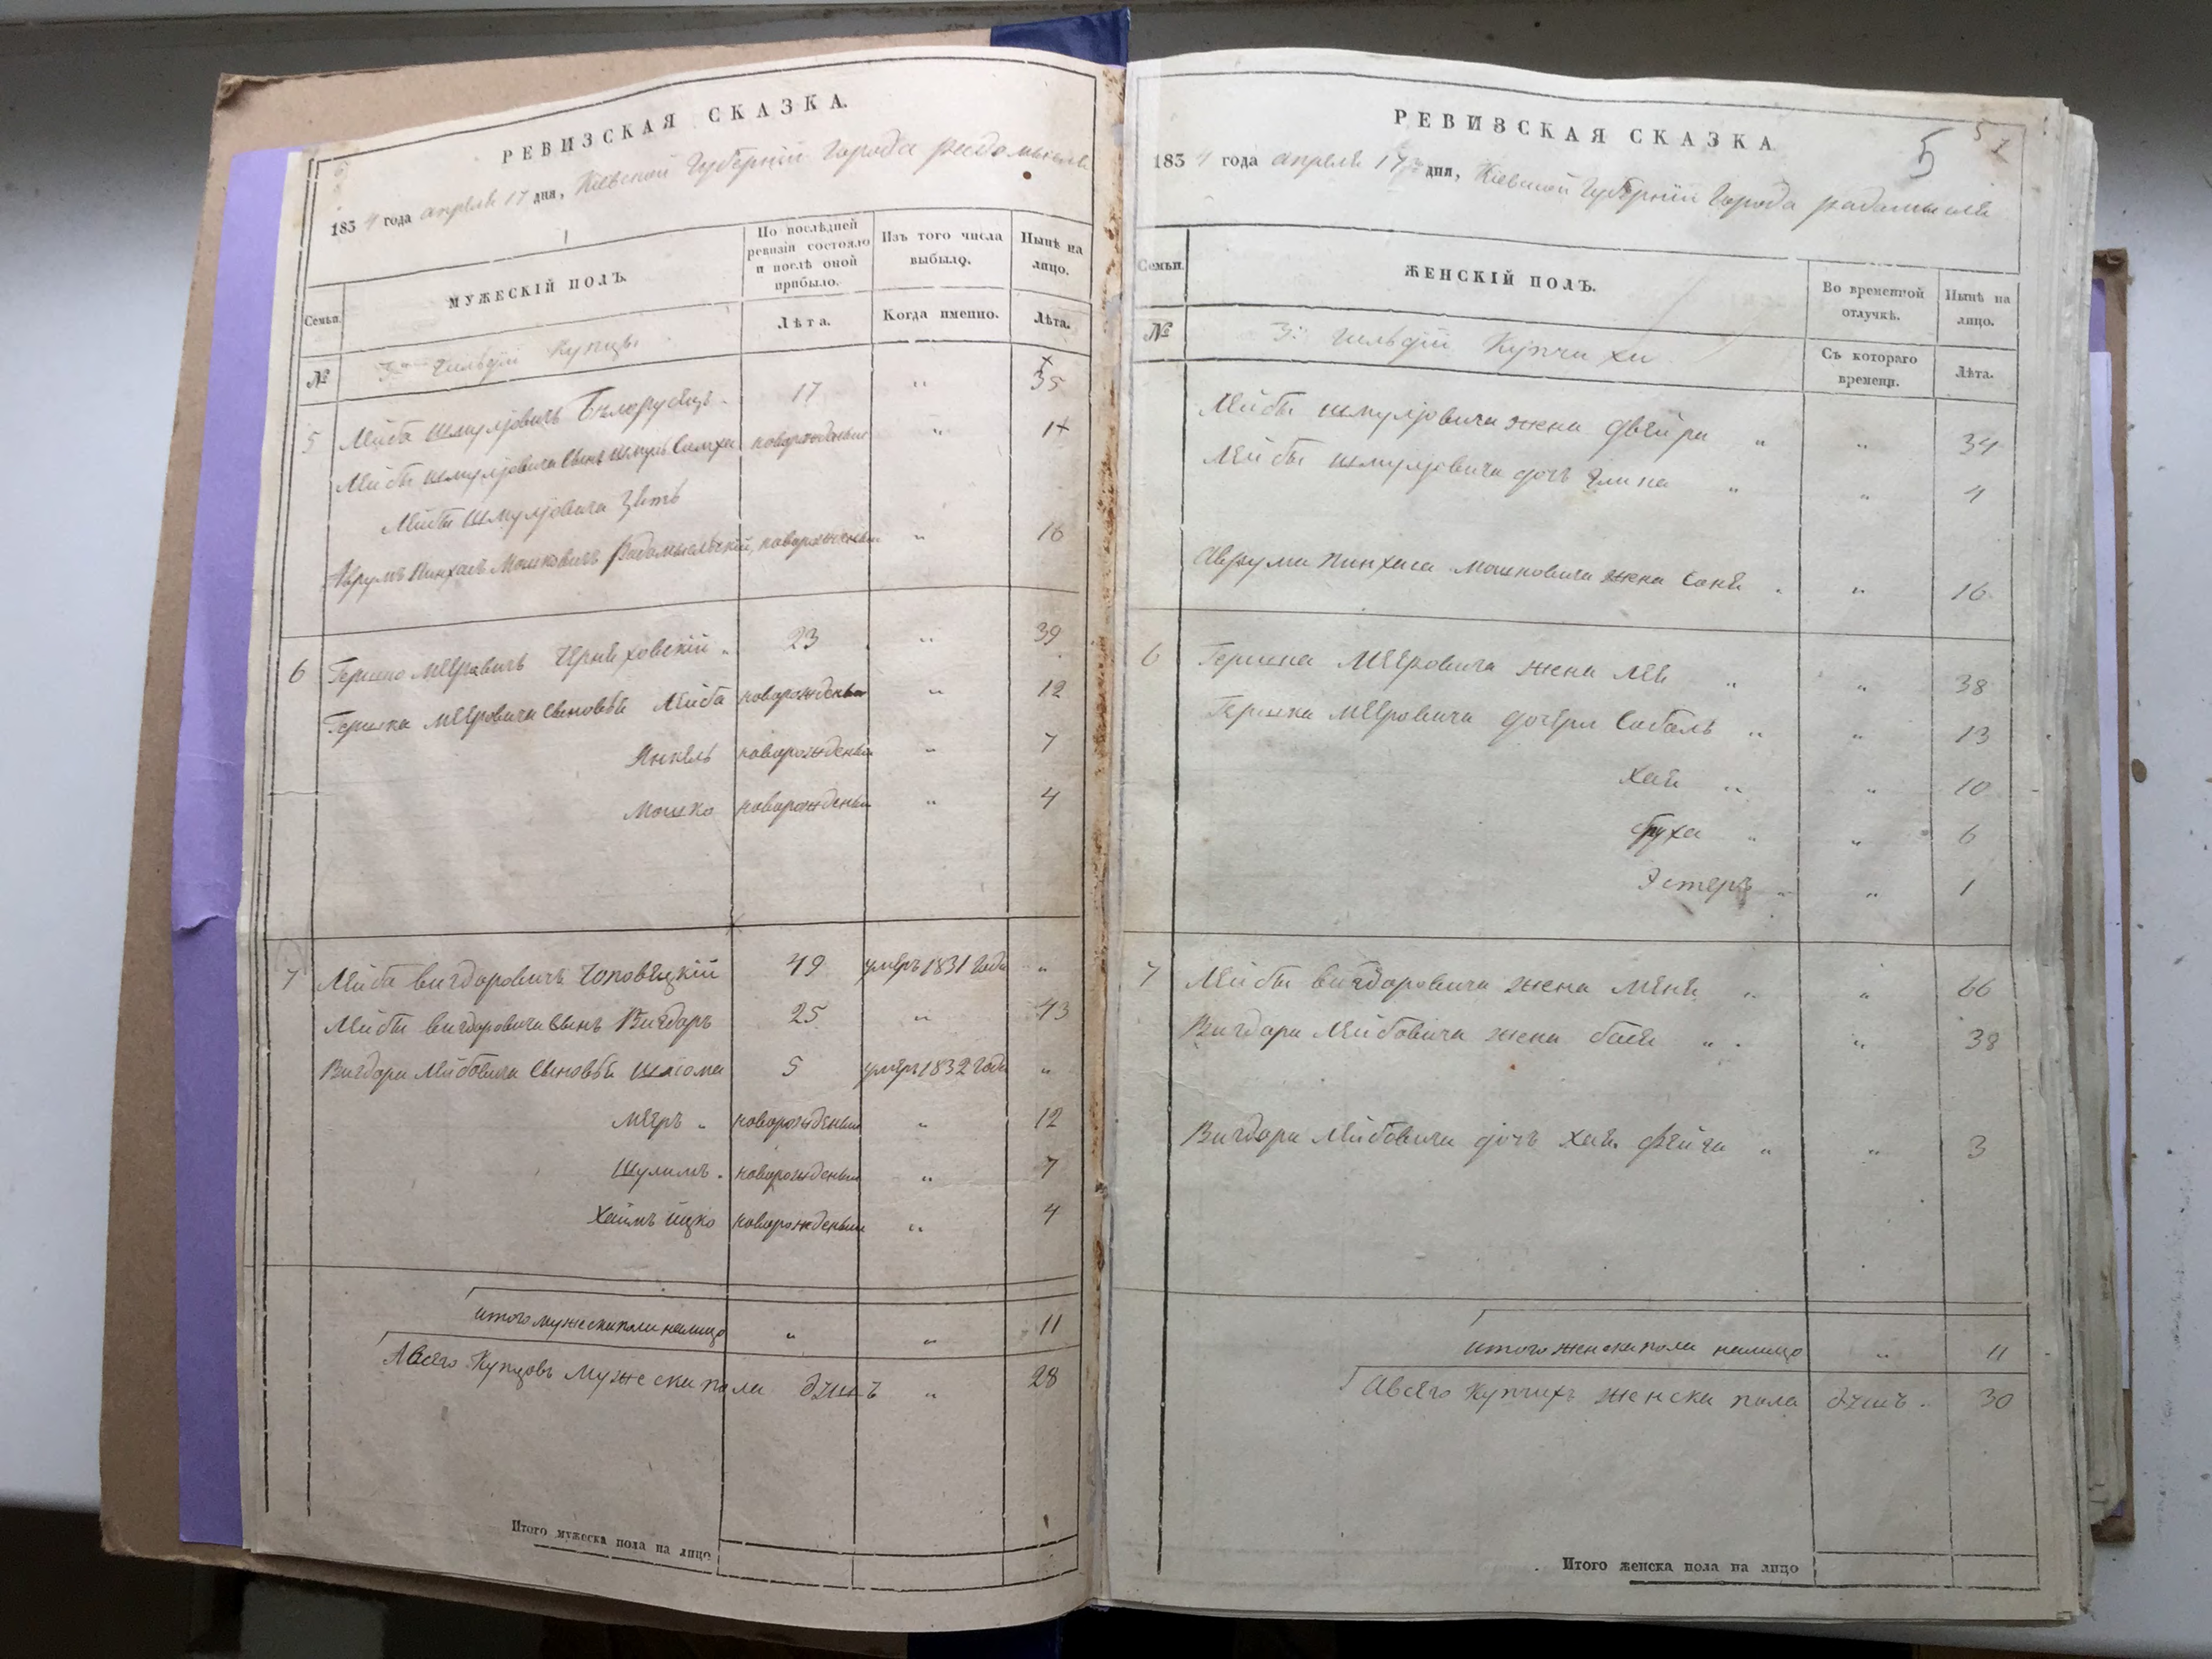 РЕВИЗСКАЯ СКАЗКА.
1834 года апреля 17 дня, Кіевской Губерніи Города радомысля
Семьи.
МУЖЕСКІЙ ПОЛЪ.
По послѣдней ревизіи состояло и послѣ оной прибыло.
Изъ того числа выбыло.
Нынѣ на лицо.
№
3й Гильдіи Купцы
Лѣта.
Когда именно.
Лѣта.
5 Лейба шмулiовичъ Бѣлорусецъ. 17 " 35
Лейбы шмулiовича сынъ шмуль Симха новорожденый "
Лейбы шмулiовича зять
Аврумъ Пинхасъ Мошковичъ Радомысльскій, новорожденый " 16
6 Гершко Мееровичъ Чернеховскій " 23 " 39
Гершка Мееровича сыновья Лейба новорожденый " 12
Янкель новорожденый " 7
Мошко новорожденый " 4
7 Лейба вигдоровичъ Чоповецкій 49 умеръ 1831 года "
Лейбы вигдоровича сынъ Вигдоръ 25 " 43
Вигдора Лейбовича сыновья 5 умеръ 1832 года "
Меръ " новорожденый " 12
Шулимъ. новорожденый " 7
Хаимъ ицко новорожденый " 4
итого мужеска пола налицо " " 11
Авсего Купцовъ мужеска пола душъ " 28
Итого мужеска пола на лицо
РЕВИЗСКАЯ СКАЗКА
5
1834 года апреля 17 дня, Кіевской Губерніи Города радомысля
Семьи.
ЖЕНСКІЙ ПОЛЪ.
Во временной отлучкѣ.
Нынѣ на лицо.
№
3й гильдіи Купчихи
Съ котораго времени.
Лѣта.
Лейбы шмулiовича жена двейра " " 34
Лейбы шмулiовича дочъ " " 4
Аврума Пинхаса Мошковича жена Соня . " 16
6 Гершка Мееровича жена Лея " " 38
Гершка Мееровича дочери Соболь " " 13
Хая " " 10
бруха " " 6
Эстеръ " " 1
7 Лейбы вигдоровича жена Меня " " 66
Вигдора Лейбовича жена бася " " 38
Вигдора Лейбовича дочъ Хая фейга " " 3
итого женска пола налицо " 11
Авсего Купчихъ женска пола душъ. 30
Итого женска пола на лицо